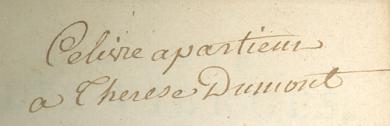 Ce livre apartient
a Therese Dumont